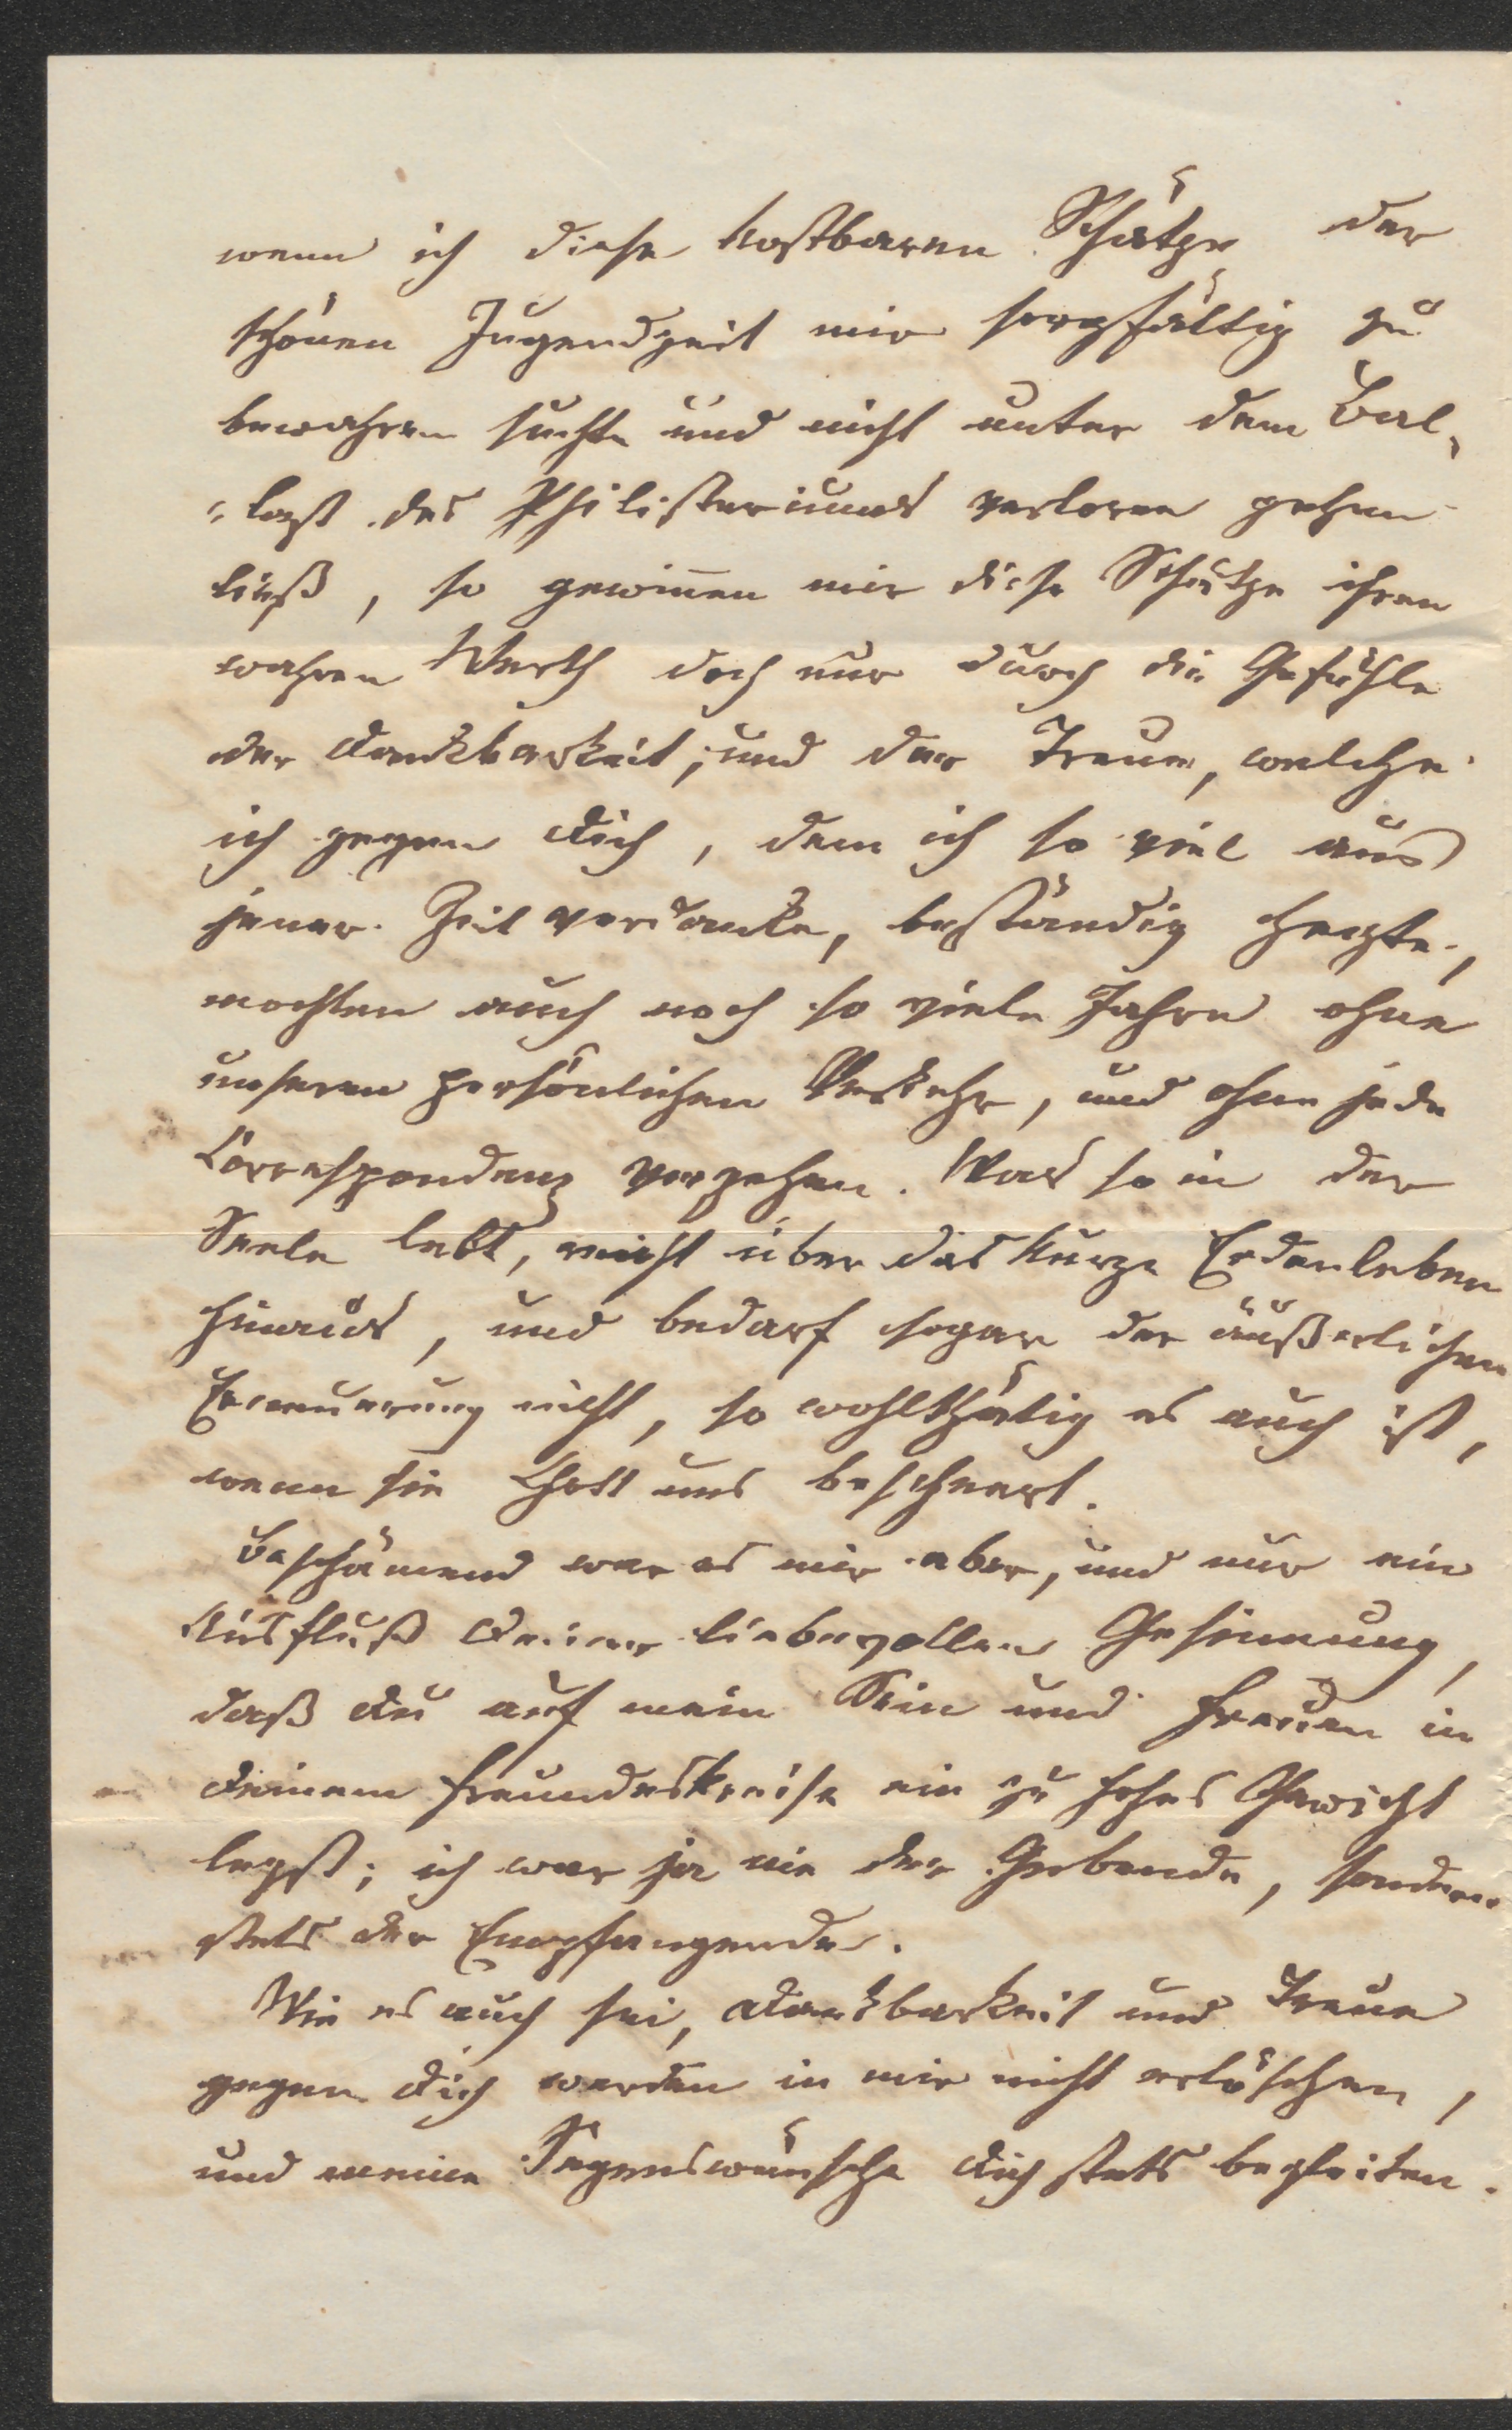 wenn ich diese kostbaren Schätze der
schönen Jugendzeit mir sorgfältig zu
bewahren suchte und nicht unter dem Bal-
-last des Philisteriums verloren gehen
ließ, so gewinnen mir diese Schätze ihren
wahren Werth doch nur durch die Gefühle
der Dankbarkeit, und der Treue, welche
ich gegen Dich, dem ich so viel aus
jener Zeit verdanke, beständig hegte,
mochten auch noch so viele Jahre ohne
unseren persönlichen Verkehr, und ohne jede
Correspondenz vergehen. Was so in der
Seele lebt, reicht über das kurze Erdenleben
hinaus, und bedarf sogar der äußerlichen
Erneuerung nicht, so wohlthätig es auch ist,
wenn sie Gott uns bescheert.
Beschämend war es mir aber, und nur ein
Ausfluß Deiner liebevollen Gesinnung,
daß Du auf mein Sein und  in
Deinem Freundeskreise ein zu hohes Gewicht
legst; ich war ja nie der Gebende, sondern
stets der Empfangende.
Wie es auch sei, Dankbarkeit und Treue
gegen Dich werden in mir nicht erlöschen,
und meine Segenswünsche Dich stets begleiten.